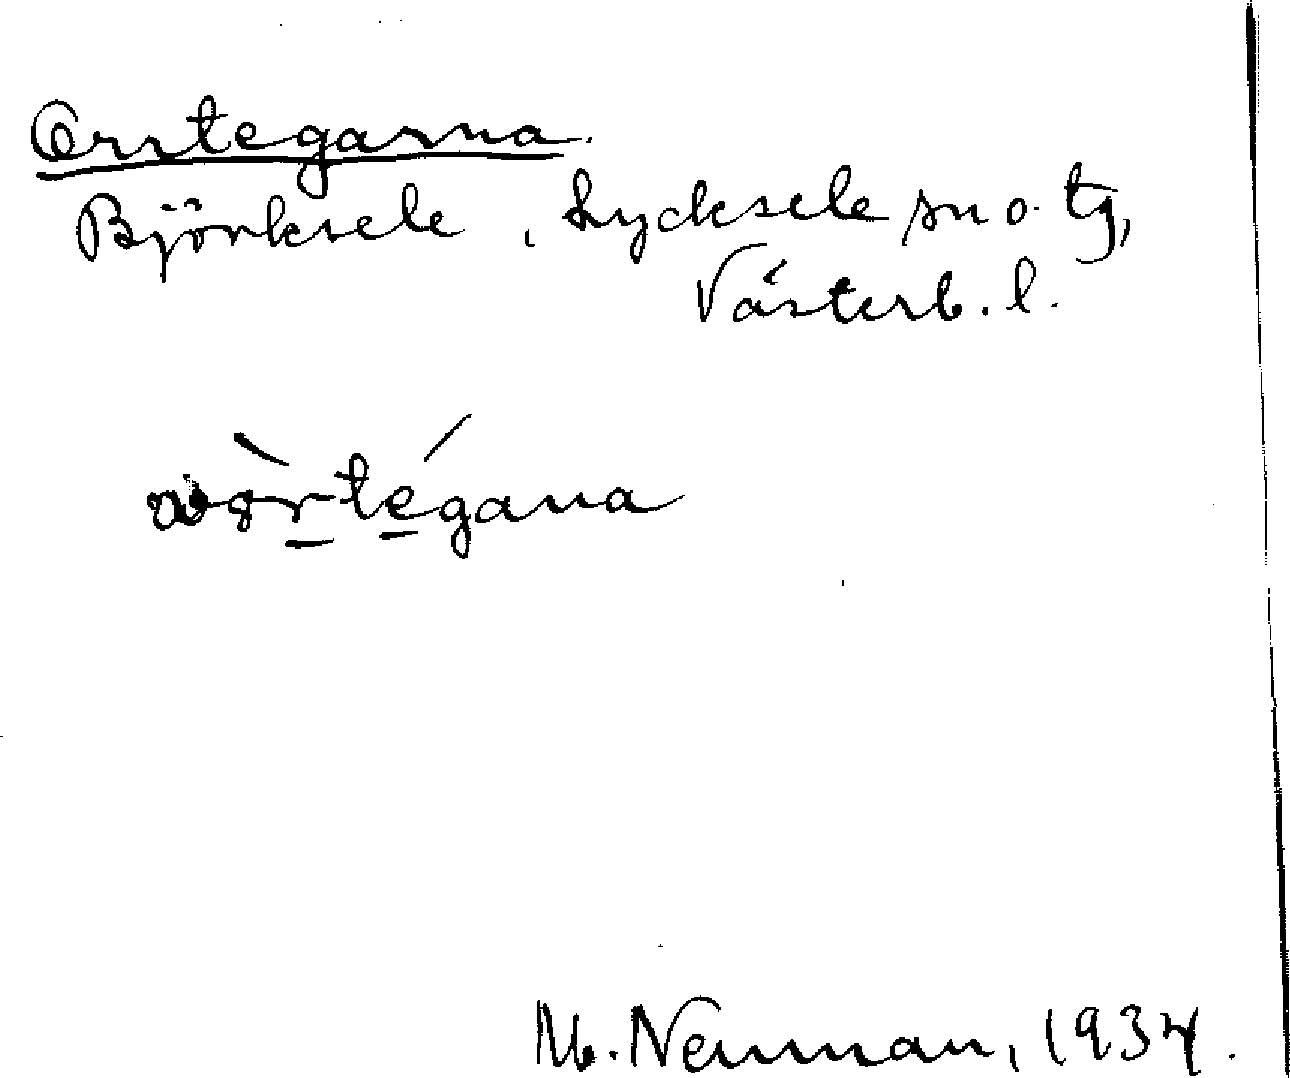 Orrtegarna.
Björksele, Lycksele sn o. tg,
Västerb. l.
M. Nenman, 1934.